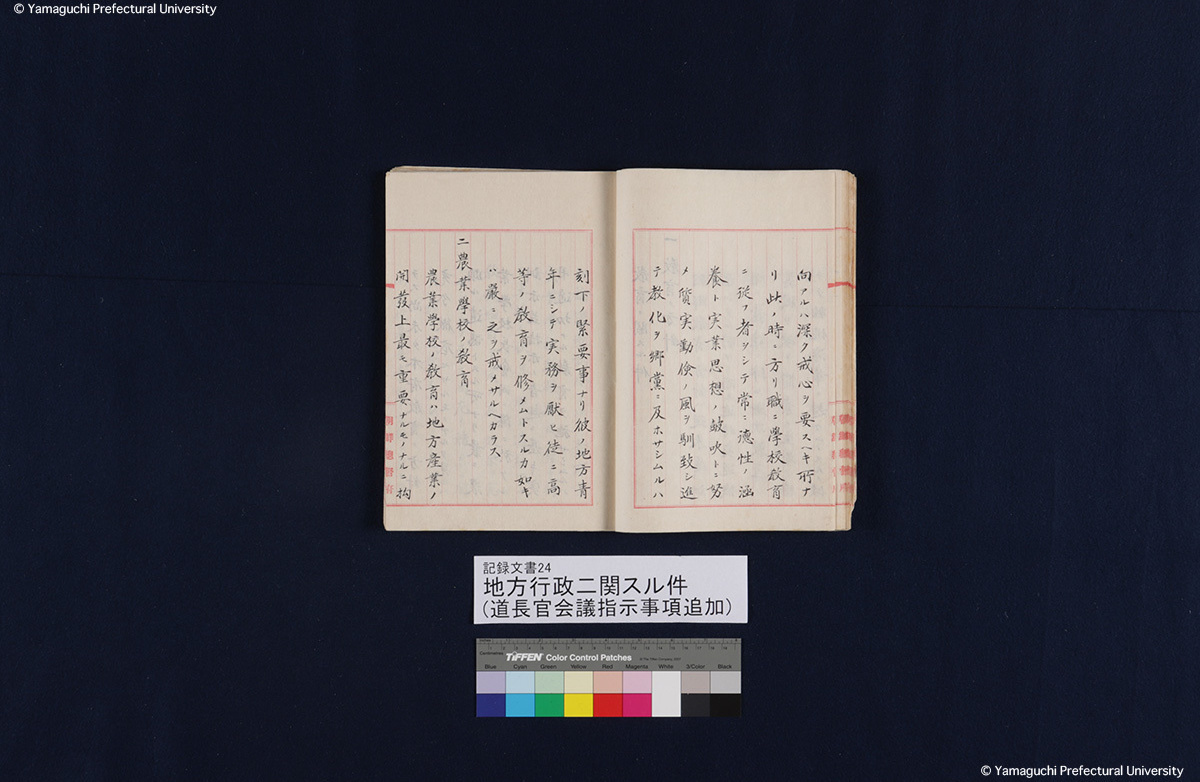 © Yamaguchi Prefectural University
向アルハ深ク戒心ヲ要スヘキ所ナ
リ此ノ時ニ方リ職ニ學校教育
ニ從フ者ヲシテ常ニ德性ノ涵
養ト実業思想ノ鼓吹トニ努
メ質実勤儉ノ風ヲ馴致シ進
テ教化ヲ郷黨ニ及ホサシムルハ
刻下ノ緊要事ナリ彼ノ地方青
年ニシテ実務ヲ厭ヒ徒ニ高
等ノ教育ヲ修メムトスルカ如キ
ハ嚴ニ之ヲ戒メサルヘカラス
二農業學校ノ教育
農業學校ノ教育ハ地方産業ノ
開發上最モ重要ナルモノナルニ拘
朝鮮總督府
記録文書24
地方行政二関スル件
(道長官会議指示事項追加)
Inches
Centimetres
TIFFEN Color Control Patches
Blue Cyan Green Yellow Red Magenta White 3/Color Black
© Yamaguchi Prefectural University